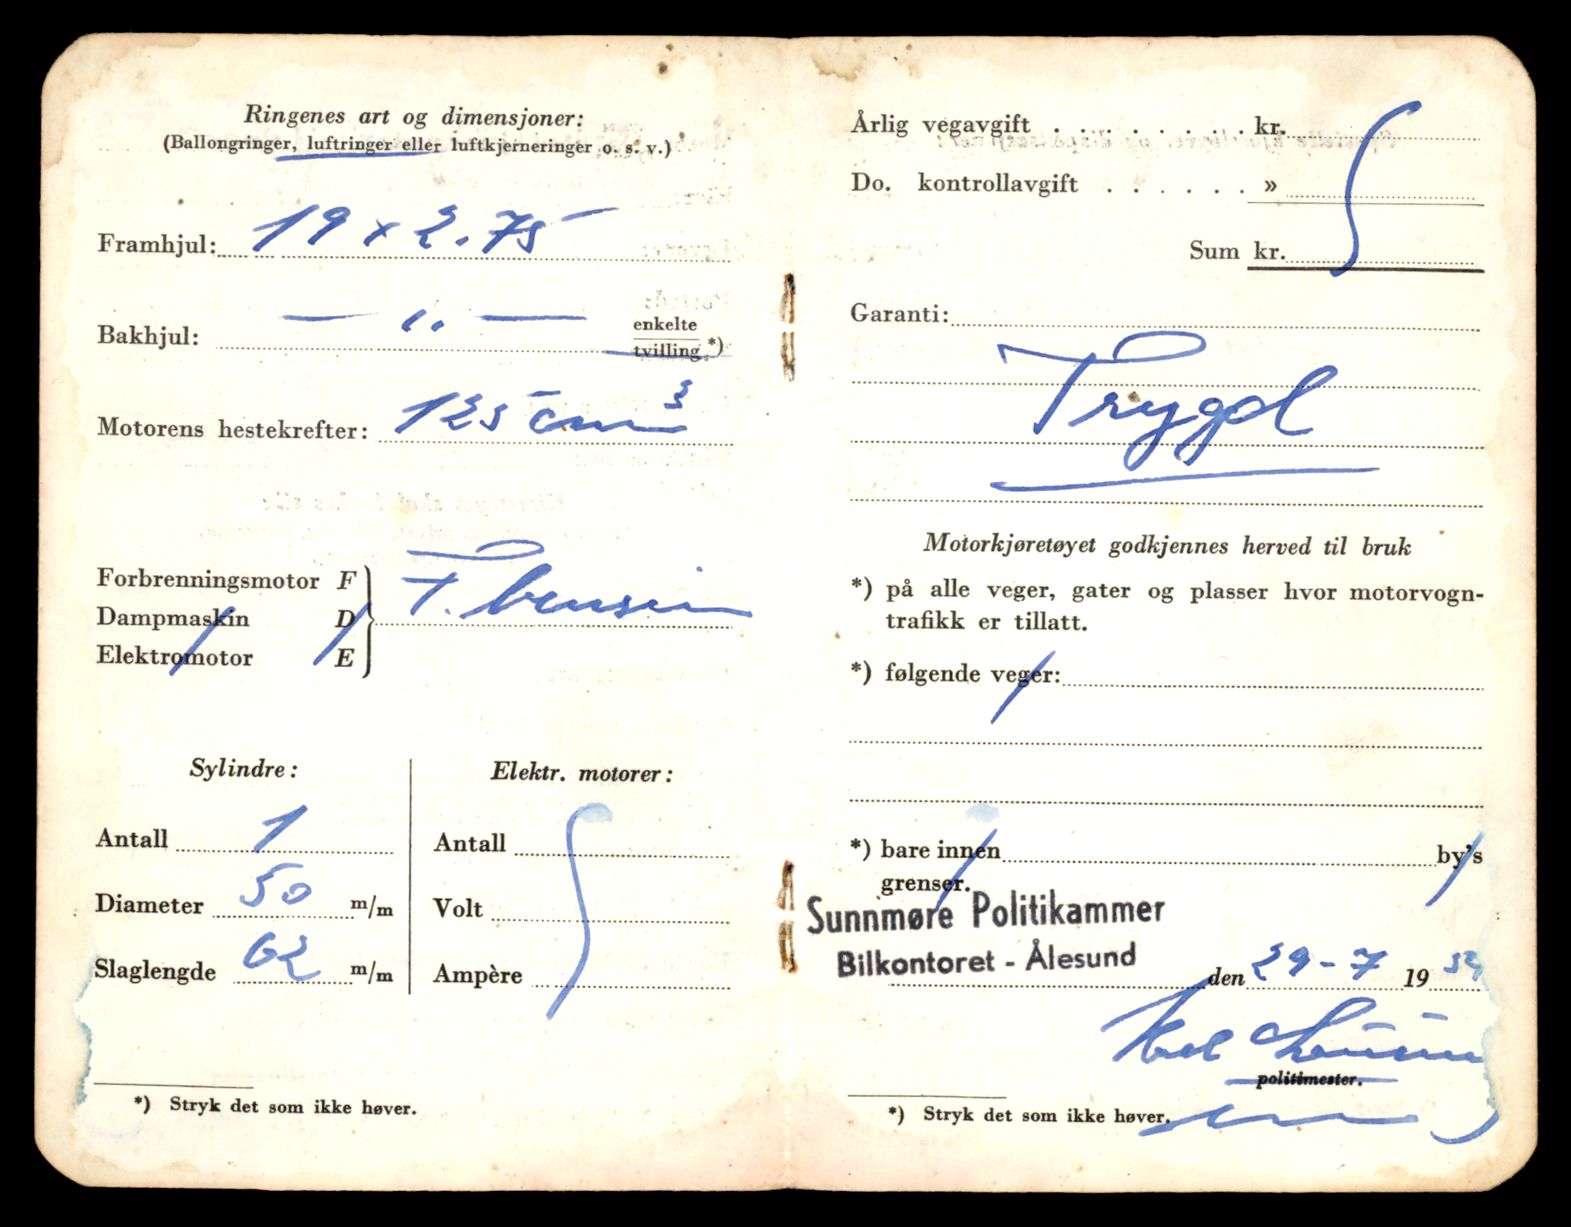 Ringenes art og dimensjoner:
(Ballongringer, luftringer eller luftkjerneringer o. s. v.)
Framhjul: 19 x 2.75
Bakhjul: — ,, — enkelte
tvilling *)
Motorens hestekrefter: 125 cm³
Forbrenningsmotor F
Dampmaskin D
Elektromotor E
F. bensin
Sylindre:
Antall 1
Diameter 50 m/m
Slaglengde 62 m/m
Elektr. motorer:
Antall
Volt
Ampère
*) Stryk det som ikke høver.
Årlig vegavgift . . . . . . . . kr.
Do. kontrollavgift . . . . . . »
Sum kr.
Garanti:
Trygd
Motorkjøretøyet godkjennes herved til bruk
*) på alle veger, gater og plasser hvor motorvogn-
trafikk er tillatt.
*) følgende veger:
*) bare innen by's
grenser.
Sunnmøre Politikammer
Bilkontoret - Ålesund
den 29-7 19
politimester.
*) Stryk det som ikke høver.